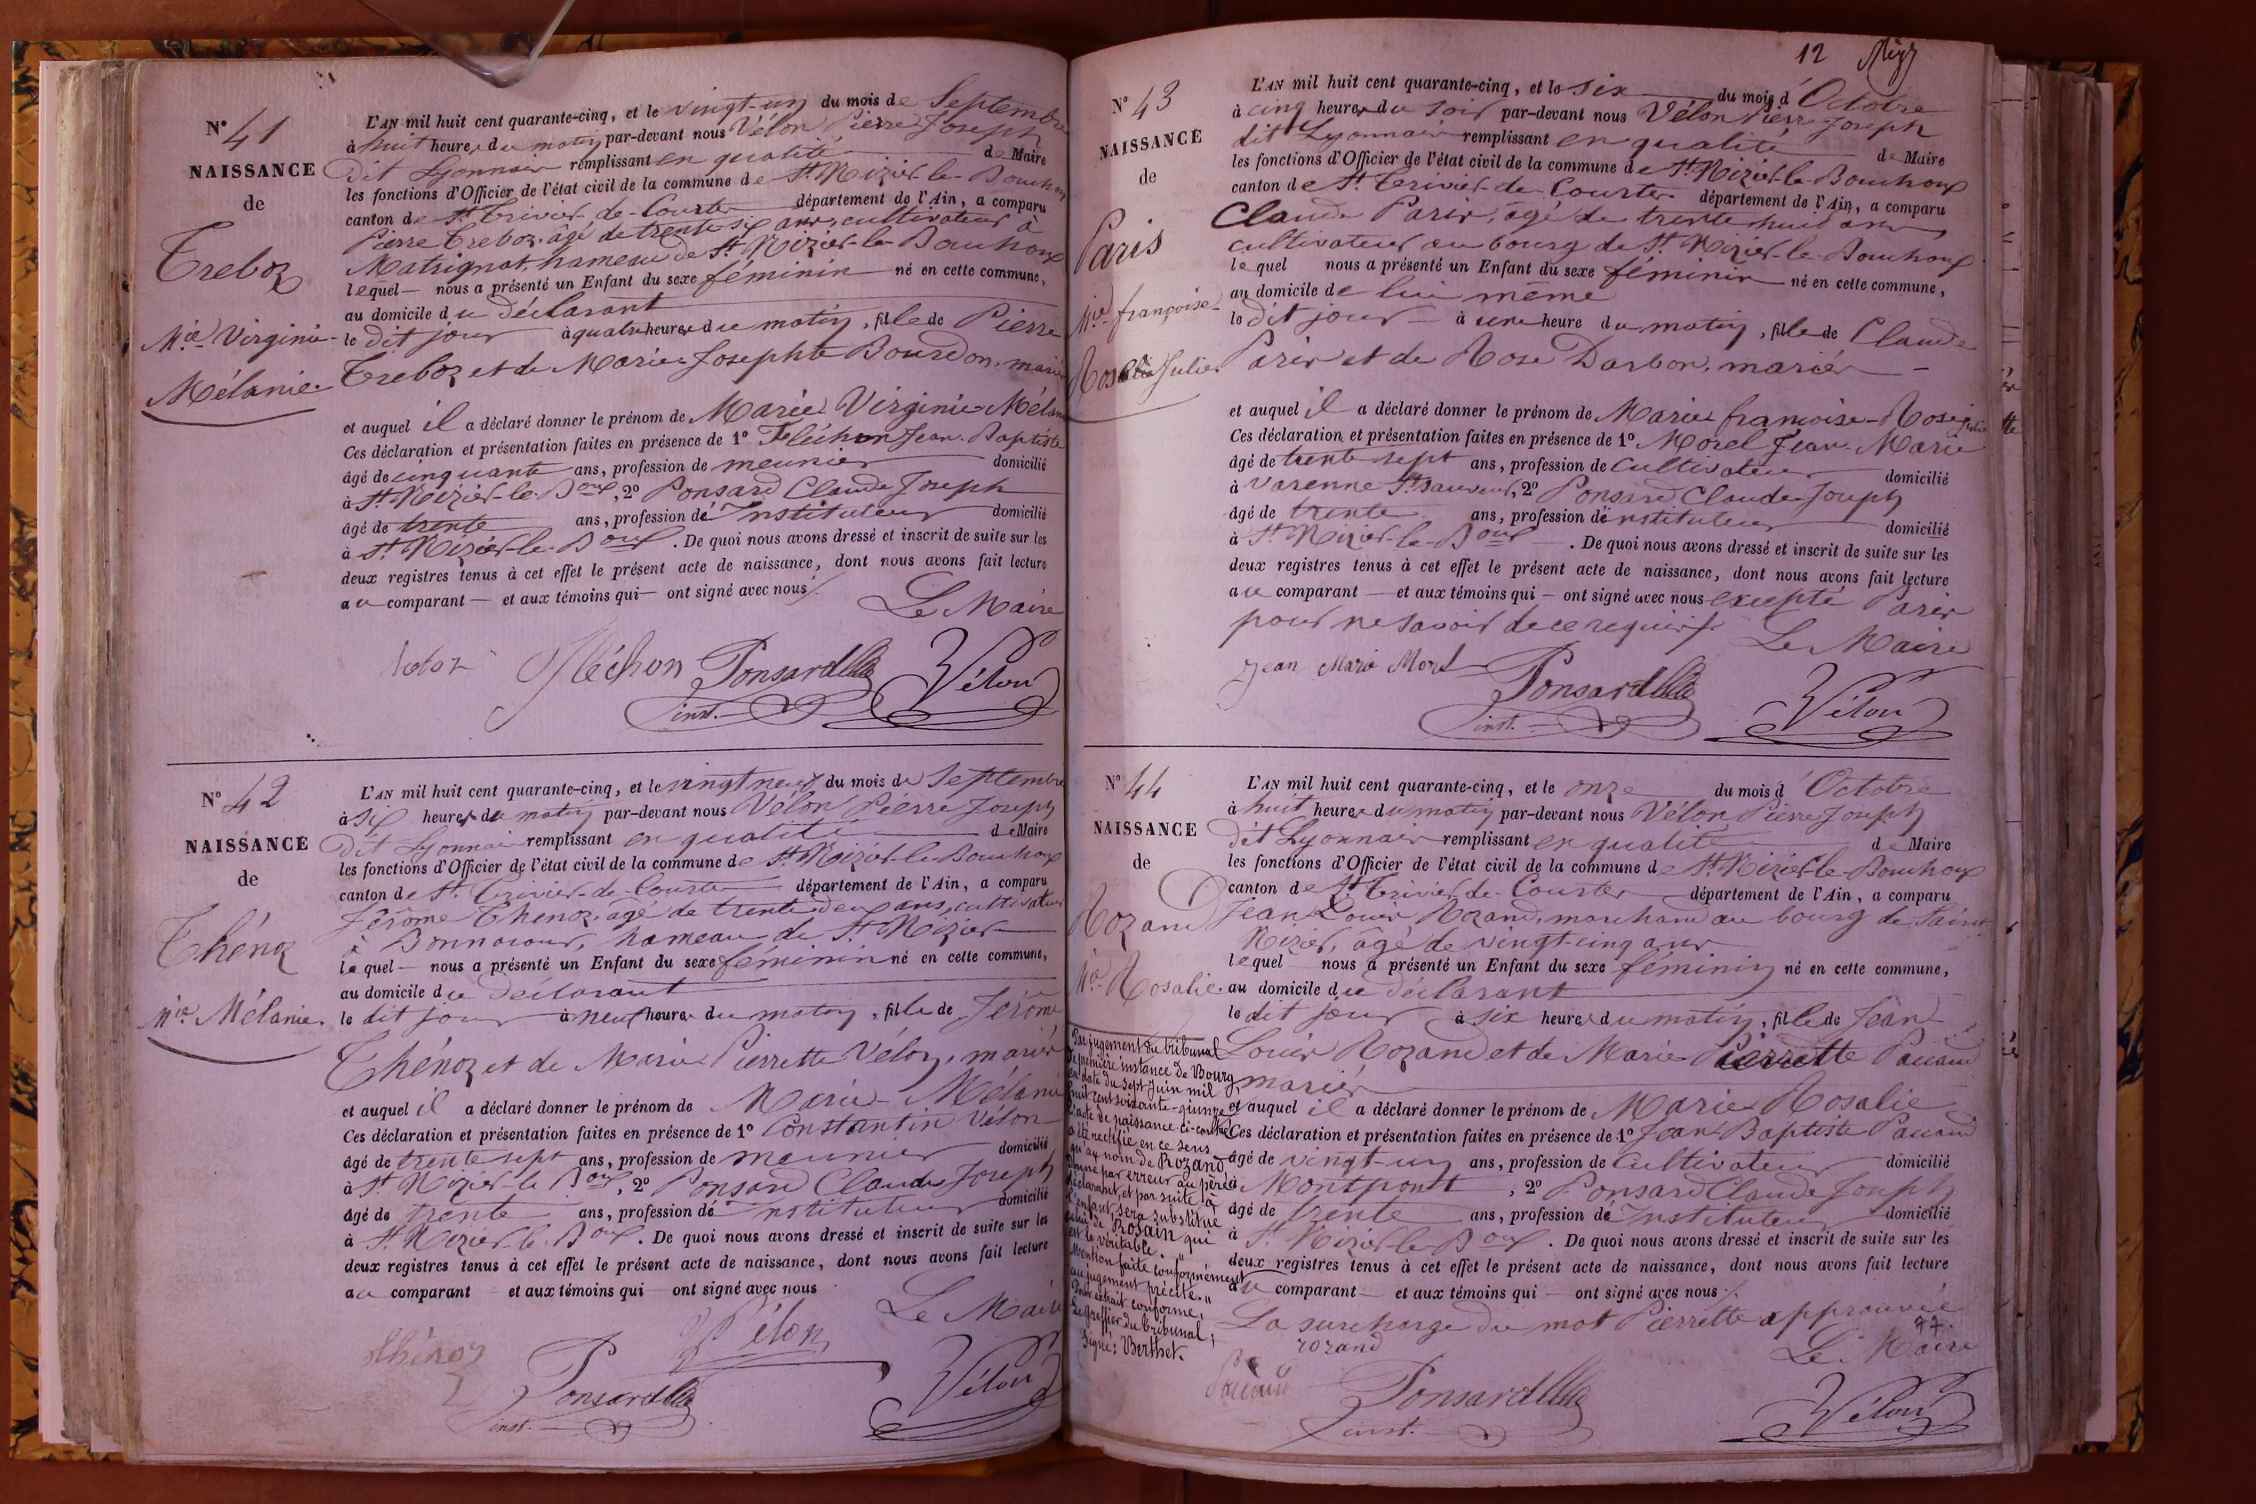 N° 41
NAISSANCE
de
Treboz
Mie Virginie
Mélanie
L'AN mil huit cent quarante-cinq, et le vingt-un du mois de Septembre
à huit heures du matin par-devant nous Vélon Pierre Joseph
dit Lyonnais remplissant en qualité de Maire
les fonctions d'Officier de l'état civil de la commune de St Nizier-le-Bouchoux
canton de St Trivier-de-Courtes département de l'Ain, a comparu
Pierre Treboz, âgé de trente-six ans, cultivateur à
Matrignat, hameau de St Nizier-le-Bouhoux
lequel — nous a présenté un Enfant du sexe féminin né en cette commune,
au domicile du déclarant
le dit jour à quatre heures du matin, fille de Pierre
Treboz et de Marie Josephte Bourdon, mariés
et auquel il a déclaré donner le prénom de Marie Virginie Mélanie
Ces déclaration et présentation faites en présence de 1° Fléchon Jean-Baptiste
âgé de cinquante ans, profession de meunier domicilié
à St Nizier-le-Boux, 2° Ponsard Claude Joseph
âgé de trente ans, profession de Instituteur domicilié
à St Nizier-le-Boux. De quoi nous avons dressé et inscrit de suite sur les
deux registres tenus à cet effet le présent acte de naissance, dont nous avons fait lecture
au comparant — et aux témoins qui — ont signé avec nous
Le Maire
Fléchon Ponsard Vélon
inst.
N° 42
NAISSANCE
de
Thénoz
Mie Mélanie
L'AN mil huit cent quarante-cinq, et le vingt neuf du mois de Septembre
à six heures du matin par-devant nous Vélon Pierre Joseph
dit Lyonnais remplissant en qualité de Maire
les fonctions d'Officier de l'état civil de la commune de St Nizier-le-Bouhoux
canton de St Trivier-de-Courtes département de l'Ain, a comparu
Jérôme Thénoz, âgé de trente deux ans, cultivateur
à hameau de St Nizier
lequel — nous a présenté un Enfant du sexe féminin né en cette commune,
au domicile du déclarant
le dit jour à neuf heures du matin, fille de Jérôme
Thénoz et de Marie Pierrette Vélon, mariés
et auquel il a déclaré donner le prénom de Marie-Mélanie
Ces déclaration et présentation faites en présence de 1° Constantin Vélon
âgé de trente sept ans, profession de meunier domicilié
à St Nizier-le-Boux, 2° Ponsard Claude Joseph
âgé de trente ans, profession de Instituteur domicilié
à St Nizier-le-Boux. De quoi nous avons dressé et inscrit de suite sur les
deux registres tenus à cet effet le présent acte de naissance, dont nous avons fait lecture
au comparant et aux témoins qui ont signé avec nous
Le Maire
thénoz Vélon
Ponsard Vélon
inst.
12
N° 43
NAISSANCE
de
Paris
Mie françoise
Rose Julie
L'AN mil huit cent quarante-cinq, et le six du mois d'Octobre
à cinq heures du soir par-devant nous Vélon Pierre Joseph
dit Lyonnais remplissant en qualité de Maire
les fonctions d'Officier de l'état civil de la commune de St Nizier-le-Bouhoux
canton de St Trivier-de-Courtes département de l'Ain, a comparu
Claude Paris, âgé de trente huit ans
cultivateur au bourg de St Nizier-le-Bouhoux
lequel nous a présenté un Enfant du sexe féminin né en cette commune,
au domicile de lui même
le dit jour à une heure du matin, fille de Claude
Paris et de Rose Darbon, mariés
et auquel il a déclaré donner le prénom de Marie françoise-Rose Julie
Ces déclaration et présentation faites en présence de 1° Morel Jean-Marie
âgé de trente sept ans, profession de Cultivateur domicilié
à Varenne St Sauveur, 2° Ponsard Claude Joseph
âgé de trente ans, profession de instituteur domicilié
à St Nizier-le-Boux. De quoi nous avons dressé et inscrit de suite sur les
deux registres tenus à cet effet le présent acte de naissance, dont nous avons fait lecture
au comparant — et aux témoins qui — ont signé avec nous excepté Paris
pour ne savoir de ce requis
Le Maire
Jean Marie Morel Ponsard Vélon
inst.
N° 44
NAISSANCE
de
Rozand
Mie Rosalie
L'AN mil huit cent quarante-cinq, et le onze du mois d'Octobre
à huit heures du matin par-devant nous Vélon Pierre Joseph
dit Lyonnais remplissant en qualité de Maire
les fonctions d'Officier de l'état civil de la commune de St Nizier-le-Bouhoux
canton de St Trivier-de-Courtes département de l'Ain, a comparu
Jean Louis Rozand, marchand au bourg de Saint
Nizier, âgé de vingt-cinq ans
lequel nous a présenté un Enfant du sexe féminin né en cette commune,
au domicile du déclarant
le dit jour à six heures du matin, fille de Jean
Louis Rozand et de Marie Pierrette Pacaud
mariés
et auquel il a déclaré donner le prénom de Marie Rosalie
Ces déclaration et présentation faites en présence de 1° Jean-Baptiste Pacaud
âgé de vingt-un ans, profession de Cultivateur domicilié
à Montpont, 2° Ponsard Claude Joseph
âgé de trente ans, profession de Instituteur domicilié
à St Nizier-le-Boux. De quoi nous avons dressé et inscrit de suite sur les
deux registres tenus à cet effet le présent acte de naissance, dont nous avons fait lecture
au comparant et aux témoins qui ont signé avec nous
La surcharge du mot Pierrette approuvée
Le Maire
rozand
Pacaud Ponsard Vélon
inst.
Par jugement du tribunal
de première instance de Bourg,
en date du sept Juin mil
huit cent soixante-quinze
l'acte de naissance ci-contre
a été rectifié en ce sens
qu'au nom de Rozand
donné par erreur au père
déclarant, et par suite à
l'enfant sera substitué
celui de Rosain qui
est le véritable. "
Mention faite conformément
au jugement précité. "
Pour extrait conforme,
Le greffier du tribunal,
Signé: Berthet.